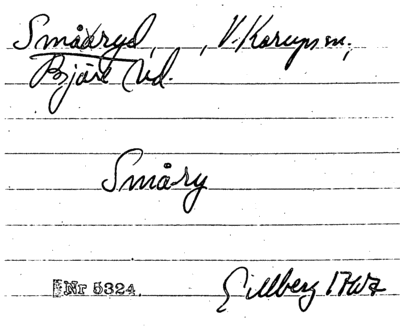 Småryd, , V. Karups sn,
Bjäre hd.
Småry
Nr 5324 Gillberg 1767